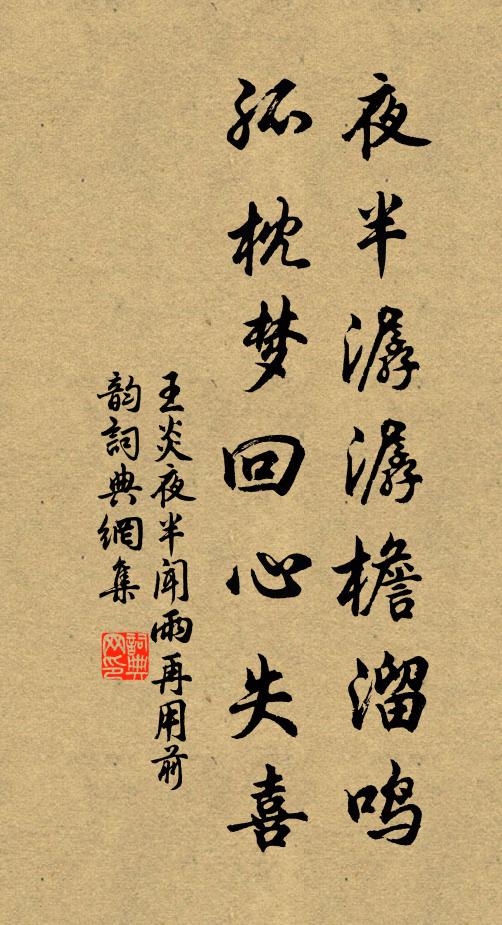 夜半潺潺檐溜鸣
孤枕梦回心失喜
王炎夜半闻雨再用前
韵词典網集
詞典
网印